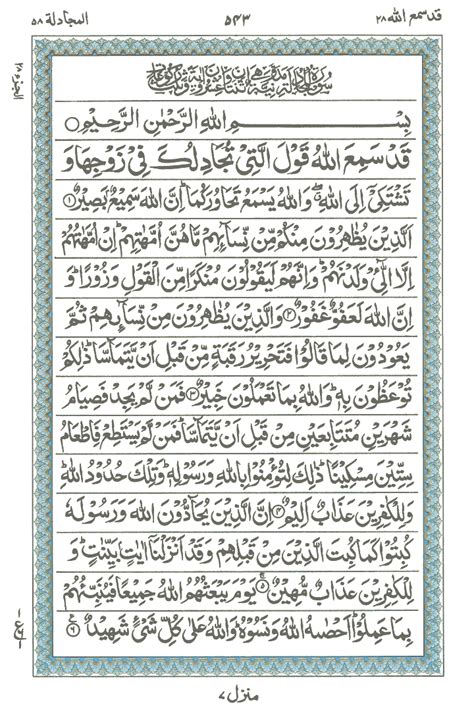 قد سمع الله ٢٨ ٥٤٣ المجادلة ٥٨
الجزء ٢٨
بِسْمِ اللهِ الرَّحْمٰنِ الرَّحِيْمِ
قَدْ سَمِعَ اللهُ قَوْلَ الَّتِيْ تُجَادِلُكَ فِيْ زَوْجِهَا وَ
تَشْتَكِيْٓ اِلَى اللهِ ۖ وَاللهُ يَسْمَعُ تَحَاوُرَكُمَا ؕ اِنَّ اللهَ سَمِيْعٌۢ بَصِيْرٌ ۝۱
اَلَّذِيْنَ يُظٰهِرُوْنَ مِنْكُمْ مِّنْ نِّسَآئِهِمْ مَّا هُنَّ اُمَّهٰتِهِمْ ؕ اِنْ اُمَّهٰتُهُمْ
اِلَّا الّٰٓـِٔيْ وَلَدْنَهُمْ ؕ وَاِنَّهُمْ لَيَقُوْلُوْنَ مُنْكَرًا مِّنَ الْقَوْلِ وَزُوْرًا ؕ وَ
اِنَّ اللهَ لَعَفُوٌّ غَفُوْرٌ ۝۲ وَالَّذِيْنَ يُظٰهِرُوْنَ مِنْ نِّسَآئِهِمْ ثُمَّ
يَعُوْدُوْنَ لِمَا قَالُوْا فَتَحْرِيْرُ رَقَبَةٍ مِّنْ قَبْلِ اَنْ يَّتَمَآسَّا ؕ ذٰلِكُمْ
تُوْعَظُوْنَ بِهٖ ؕ وَاللهُ بِمَا تَعْمَلُوْنَ خَبِيْرٌ ۝۳ فَمَنْ لَّمْ يَجِدْ فَصِيَامُ
شَهْرَيْنِ مُتَتَابِعَيْنِ مِنْ قَبْلِ اَنْ يَّتَمَآسَّا ۚ فَمَنْ لَّمْ يَسْتَطِعْ فَاِطْعَامُ
سِتِّيْنَ مِسْكِيْنًا ؕ ذٰلِكَ لِتُؤْمِنُوْا بِاللهِ وَرَسُوْلِهٖ ؕ وَتِلْكَ حُدُوْدُ اللهِ ؕ
وَلِلْكٰفِرِيْنَ عَذَابٌ اَلِيْمٌ ۝۴ اِنَّ الَّذِيْنَ يُحَآدُّوْنَ اللهَ وَرَسُوْلَهٗ
كُبِتُوْا كَمَا كُبِتَ الَّذِيْنَ مِنْ قَبْلِهِمْ وَقَدْ اَنْزَلْنَآ اٰيٰتٍۭ بَيِّنٰتٍ ؕ وَ
لِلْكٰفِرِيْنَ عَذَابٌ مُّهِيْنٌ ۝۵ يَوْمَ يَبْعَثُهُمُ اللهُ جَمِيْعًا فَيُنَبِّئُهُمْ
بِمَا عَمِلُوْا ؕ اَحْصٰىهُ اللهُ وَنَسُوْهُ ؕ وَاللهُ عَلٰى كُلِّ شَيْءٍ شَهِيْدٌ ۝۶
منزل ٧